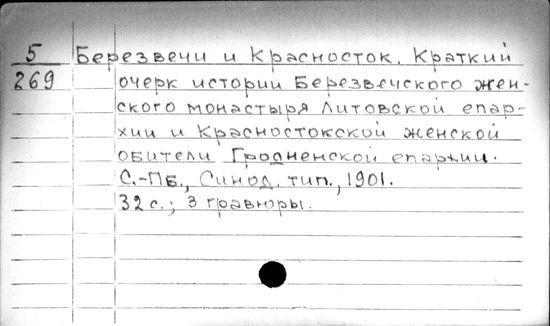 5 Березвечи и Красносток. Краткий
269 очерк истории Березвечского жен-
ского монастыря Литовской епар-
хии и Красностокской женской
обители Гродненской епархии.
С.-Пб., Синод. тип., 1901.
32 с.; 3 гравюры.